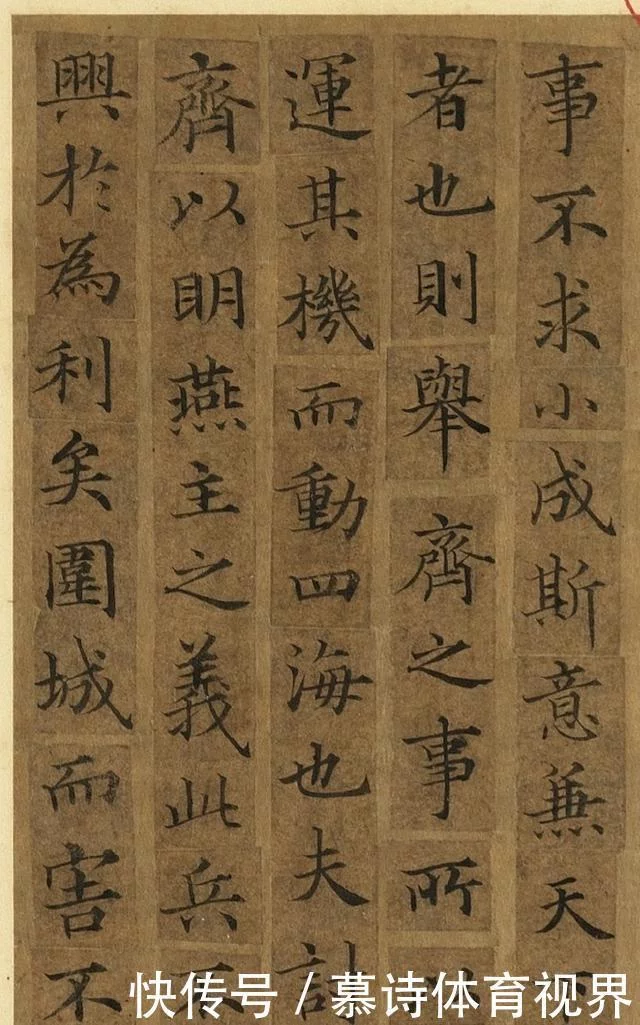 事不求小成斯意兼天下
者也則舉齊之事所以
運其機而動四海也夫討
齊以明燕主之義此兵不
興於為利矣圍城而害不
快传号 / 慕诗体育视界